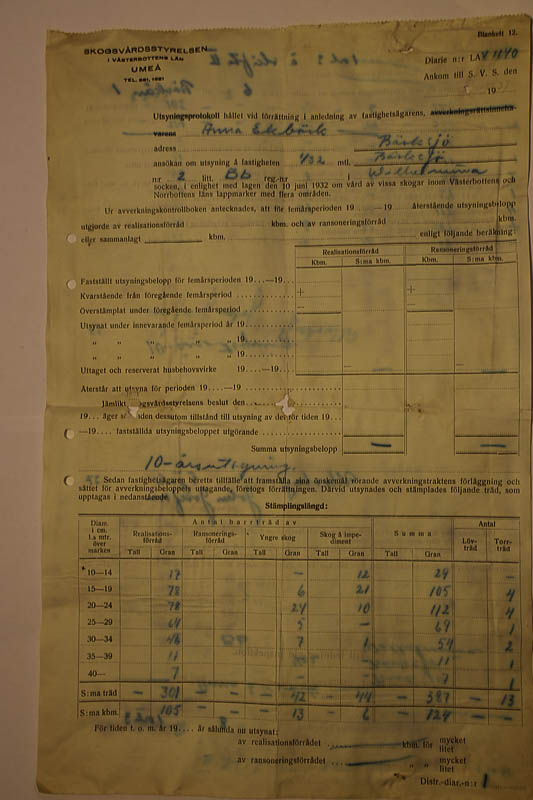 Blankett 12.
SKOGSVÅRDSSTYRELSEN
I VÄSTERBOTTENS LÄN
UMEÅ
TEL. 281, 1281
Diarie n:r LA
Ankom till S. V. S. den
19
Utsyningsprotokoll hållet vid förrättning i anledning av fastighetsägarens, avverkningsrättsinneha-
varens Anna Ekbäck
adress Bäcksjö
ansökan om utsyning å fastigheten 1/32 mtl. Bäcksjö
n:r 2 litt. Bb reg.-nr i Wilhelmina
socken, i enlighet med lagen den 10 juni 1932 om vård av vissa skogar inom Västerbottens och
Norrbottens läns lappmarker med flera områden.
Ur avverkningskontrollboken antecknas, att för femårsperioden 19 —19 återstående utsyningsbelopp
utgjorde av realisationsförråd kbm. och av ransoneringsförråd kbm.
eller sammanlagt kbm. enligt följande beräkning:
Realisationsförråd Ransoneringsförråd
Kbm. S:ma kbm. Kbm. S:ma kbm.
Fastställt utsyningsbelopp för femårsperioden 19....—19....
Kvarstående från föregående femårsperiod + +
Överstämplat under föregående femårsperiod — —
Utsynat under innevarande femårsperiod år 19
„ „ „ „ 19
„ „ „ „ 19
Uttaget och reserverat husbehovsvirke 19......—19 — —
Återstår att utsyna för perioden 19 ....—19
Jämlikt skogsvårdsstyrelsens beslut den
19 ... äger dessutom tillstånd till utsyning av det för tiden 19
—19.... fastställda utsyningsbeloppet utgörande
Summa utsyningsbelopp — —
10-årsutsyning.
Sedan fastighetsägaren beretts tillfälle att framställa sina önskemål rörande avverkningstraktens förläggning och
sättet för avverkningsbeloppets uttagande, företogs förrättningen. Därvid utsynades och stämplades följande träd, som
upptagas i nedanstående
Stämplingslängd:
Diam. i cm. 1,3 mtr. över marken Antal barrträd av Summa Antal
Realisations-förråd Ransonerings-förråd Yngre skog Skog å impediment Löv-träd Torr-träd
Tall Gran Tall Gran Tall Gran Tall Gran Tall Gran
*10—14 17 — 12 29 —
15—19 78 6 21 105 4
20—24 78 24 10 112 4
25—29 64 5 — 69 1
30—34 46 7 1 54 2
35—39 11 — — 11 1
40— 7 — — 7 1
S:ma träd — 301 — — — 42 — 44 — 387 — 13
S:ma kbm. 105 13 6 124 — —
För tiden t. o. m. år 19.... är sålunda nu utsynat:
av realisationsförrådet kbm. för mycket
litet
av ransoneringsförrådet „ „ mycket
litet
Distr.-diar.-n:r 1